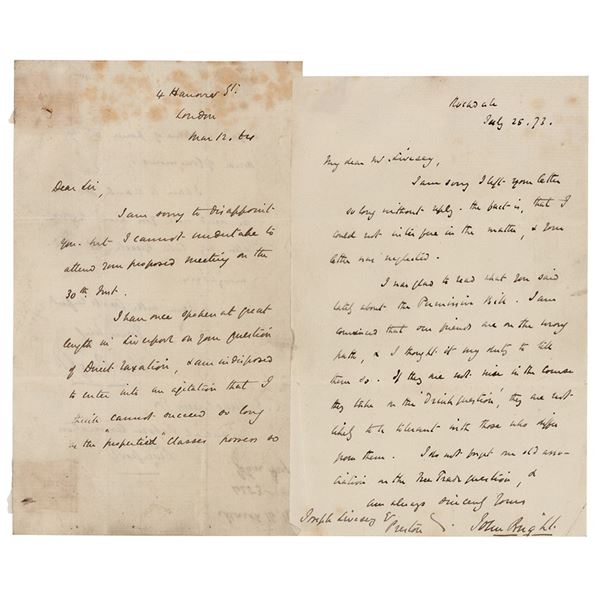 4 Hanover St.
London
Mar 12. 64
Dear Sir,
I am sorry to disappoint
you - but I cannot undertake to
attend your proposed meeting on the
30th Inst.
I have once spoken at great
length in Liverpool on your question
of Direct Taxation, & am indisposed
to enter into an agitation that I
think cannot succeed so long
as the "propertied" classes possess so
Rochdale
July 25. 73.
My dear Mr Livesey,
I am sorry I left your letter
so long without reply. The fact is, that I
could not interfere in the matter, & your
letter was neglected.
I was glad to read what you said
lately about the Permissive Bill. I am
convinced that our friends are on the wrong
path, & I thought it my duty to tell
them so. If they are not wise in the course
they take on the 'Drink question', they are not
likely to be tolerant with those who differ
from them. I do not forget our old asso-
ciation on the Free Trade question, &
am always sincerely yours
John Bright.
Joseph Livesey Esq
Preston